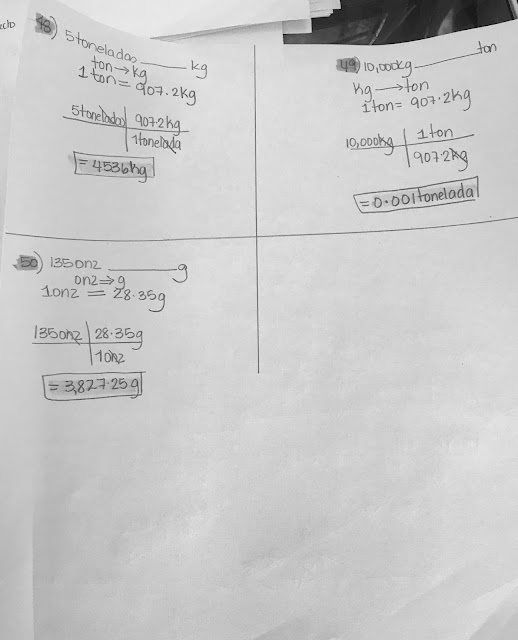 ecto
48) 5 toneladas ______ kg
ton → kg
1 ton = 907.2kg
5 toneladas | 907.2kg
1 tonelada
= 4536kg
49) 10,000kg ______ ton
kg → ton
1 ton = 907.2kg
10,000kg | 1 ton
907.2kg
= 0.001 tonelada
50) 1350nz ______ g
onz ⇒ g
1 onz = 28.35g
1350nz | 28.35g
1 onz
= 3,827.25g